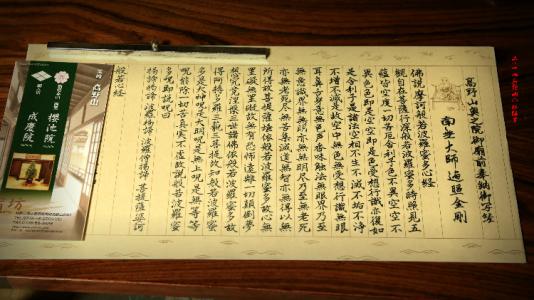 高野山奥之院御廟前奉納御写経
南無大師遍照金剛
佛説摩訶般若波羅蜜多心経
観自在菩薩行深般若波羅蜜多時照見五
蘊皆空度一切苦厄舎利子色不異空空不
異色色即是空空即是色受想行識亦復如
是舎利子是諸法空相不生不滅不垢不浄
不増不減是故空中無色無受想行識無眼
耳鼻舌身意無色声香味触法無眼界乃至
無意識界無無明亦無無明尽乃至無老死
亦無老死尽無苦集滅道無智亦無得以無
所得故菩提薩埵依般若波羅蜜多故心無
罣礙無罣礙故無有恐怖遠離一切顛倒夢
想究竟涅槃三世諸佛依般若波羅蜜多故
得阿耨多羅三藐三菩提故知般若波羅蜜
多是大神呪是大明呪是無上呪是無等等
呪能除一切苦真実不虚故説般若波羅蜜
多呪即説呪曰
羯諦羯諦波羅羯諦波羅僧羯諦菩提薩婆訶
般若心経
高野山
櫻池院
成慶院